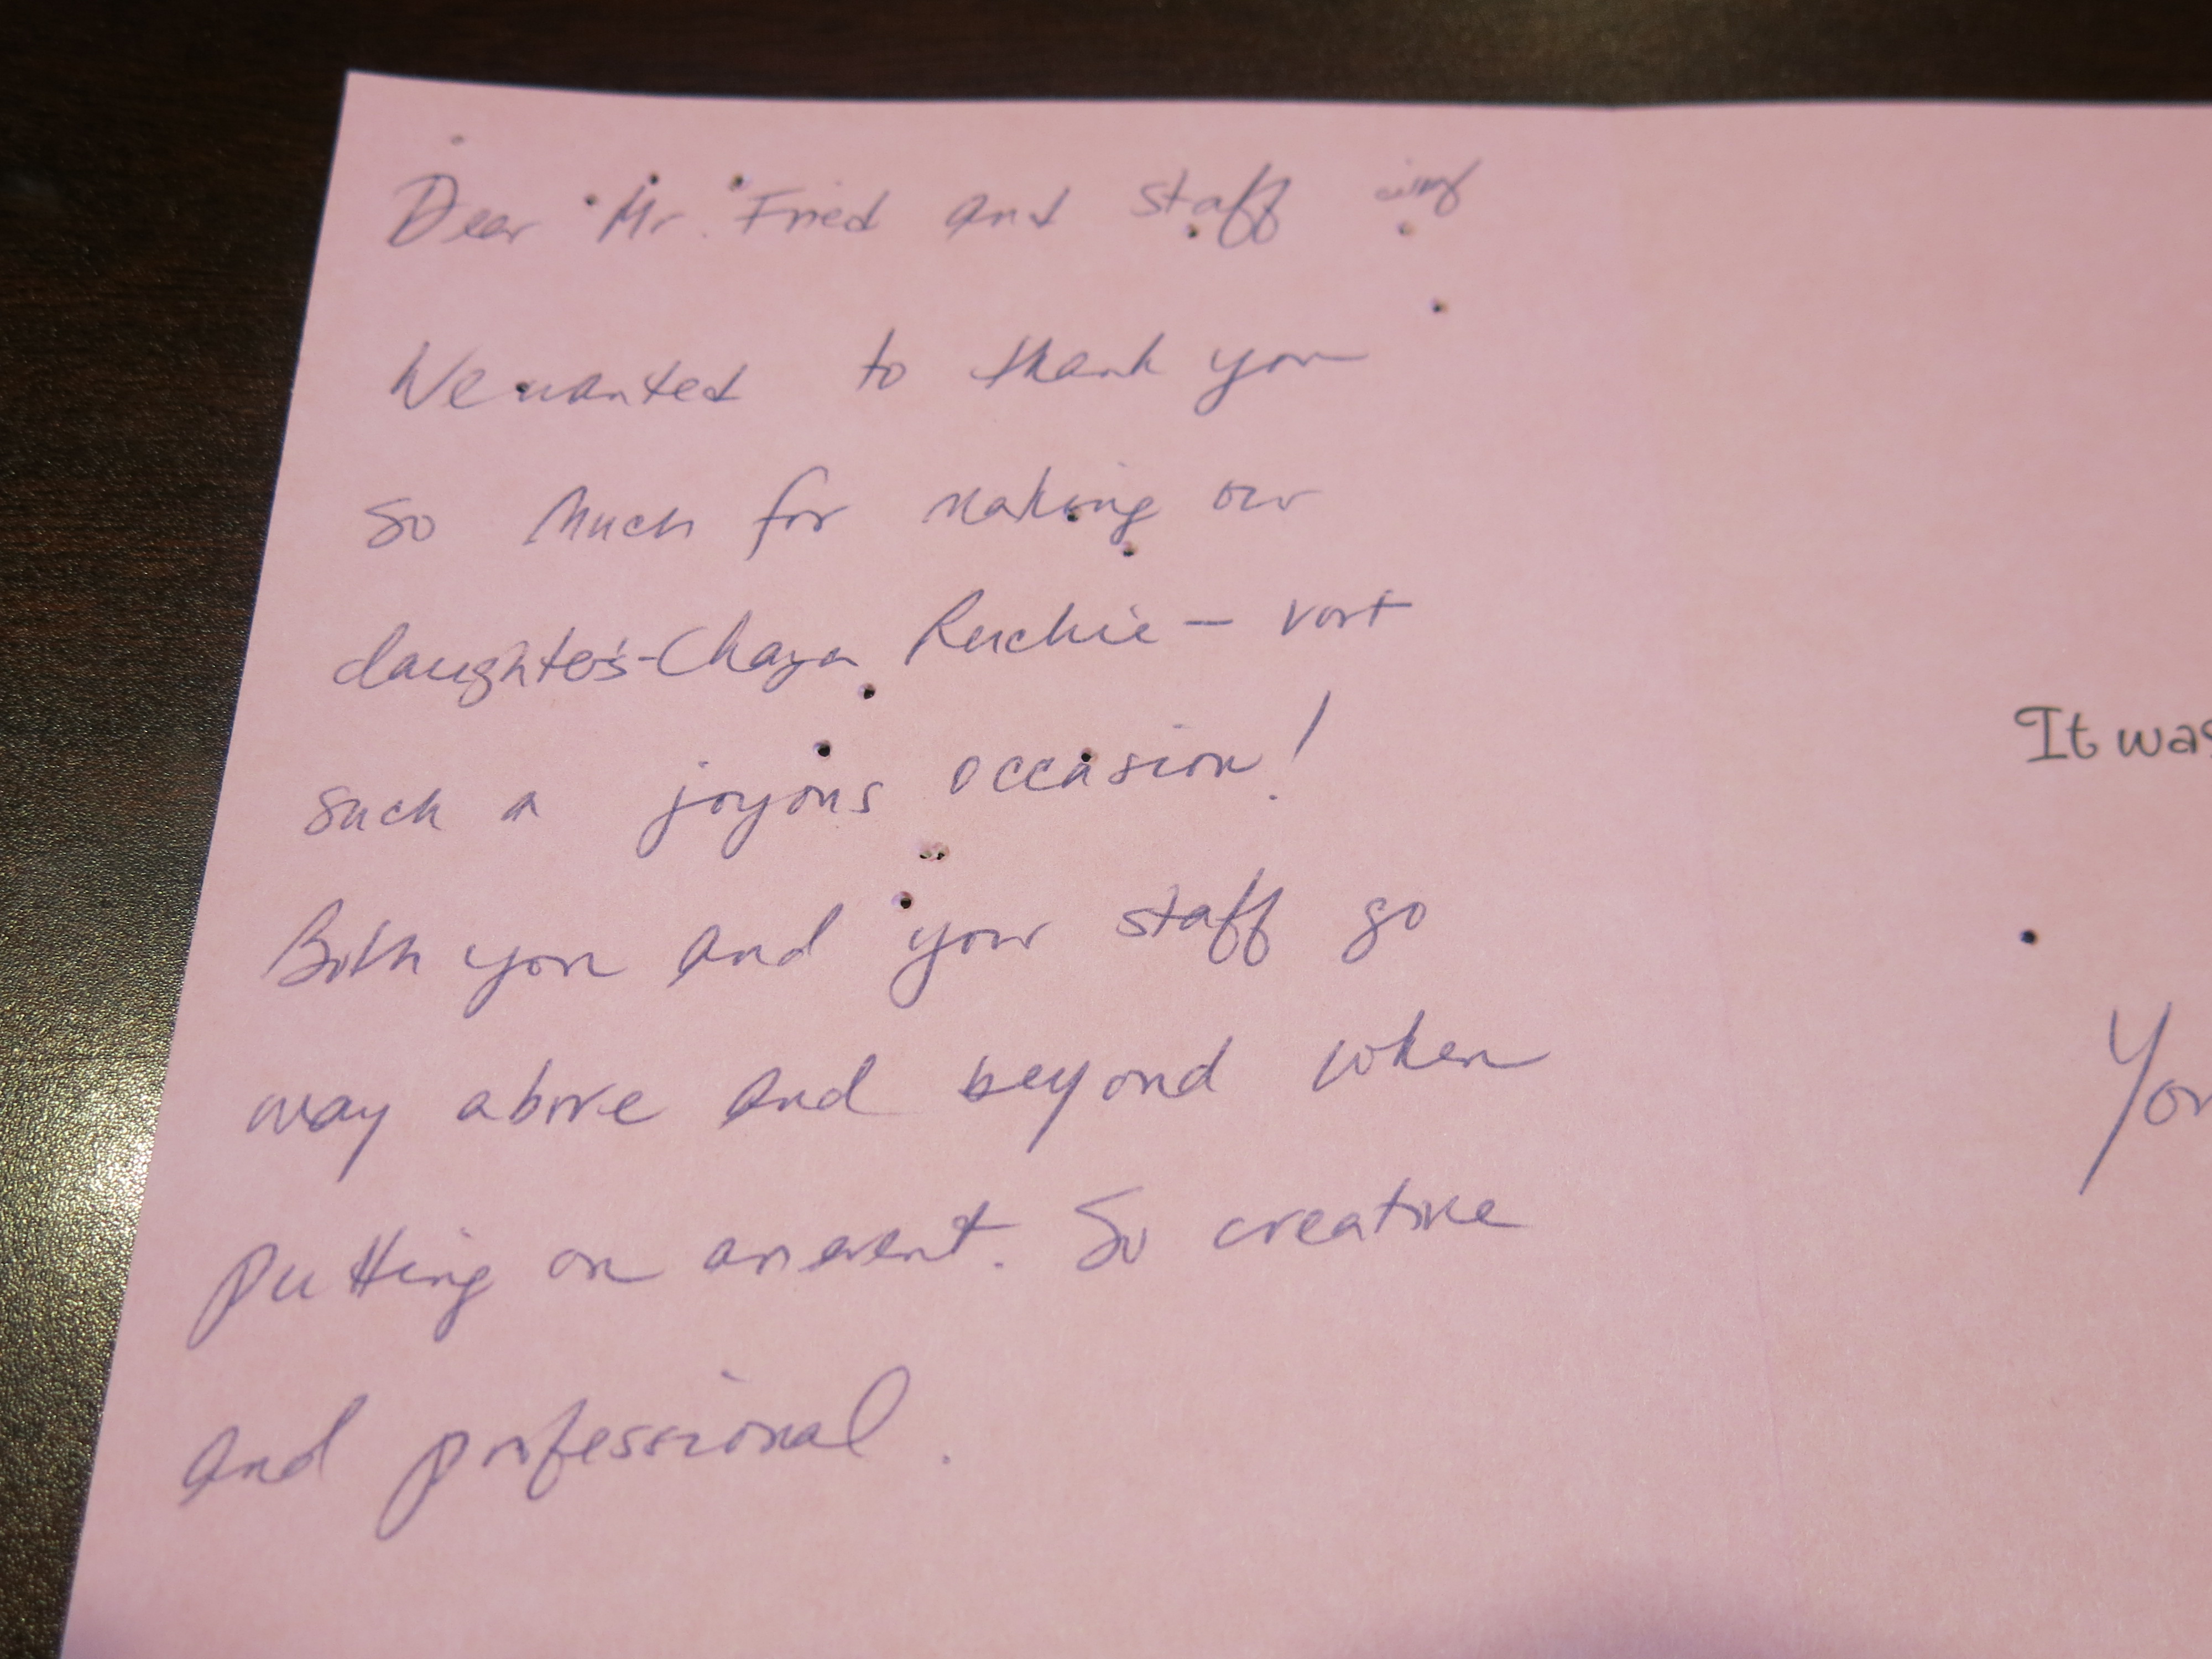 Dear Mr. Fried and staff
We wanted to thank you
so much for making our
daughter's - Chaya Ruchie - vort
such a joyous occasion!
Both you and your staff go
way above and beyond when
putting on an event. So creative
and professional.
It was
You